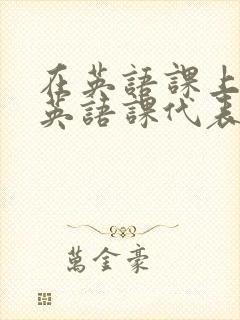 在英語課上
英語課代表
萬金豪